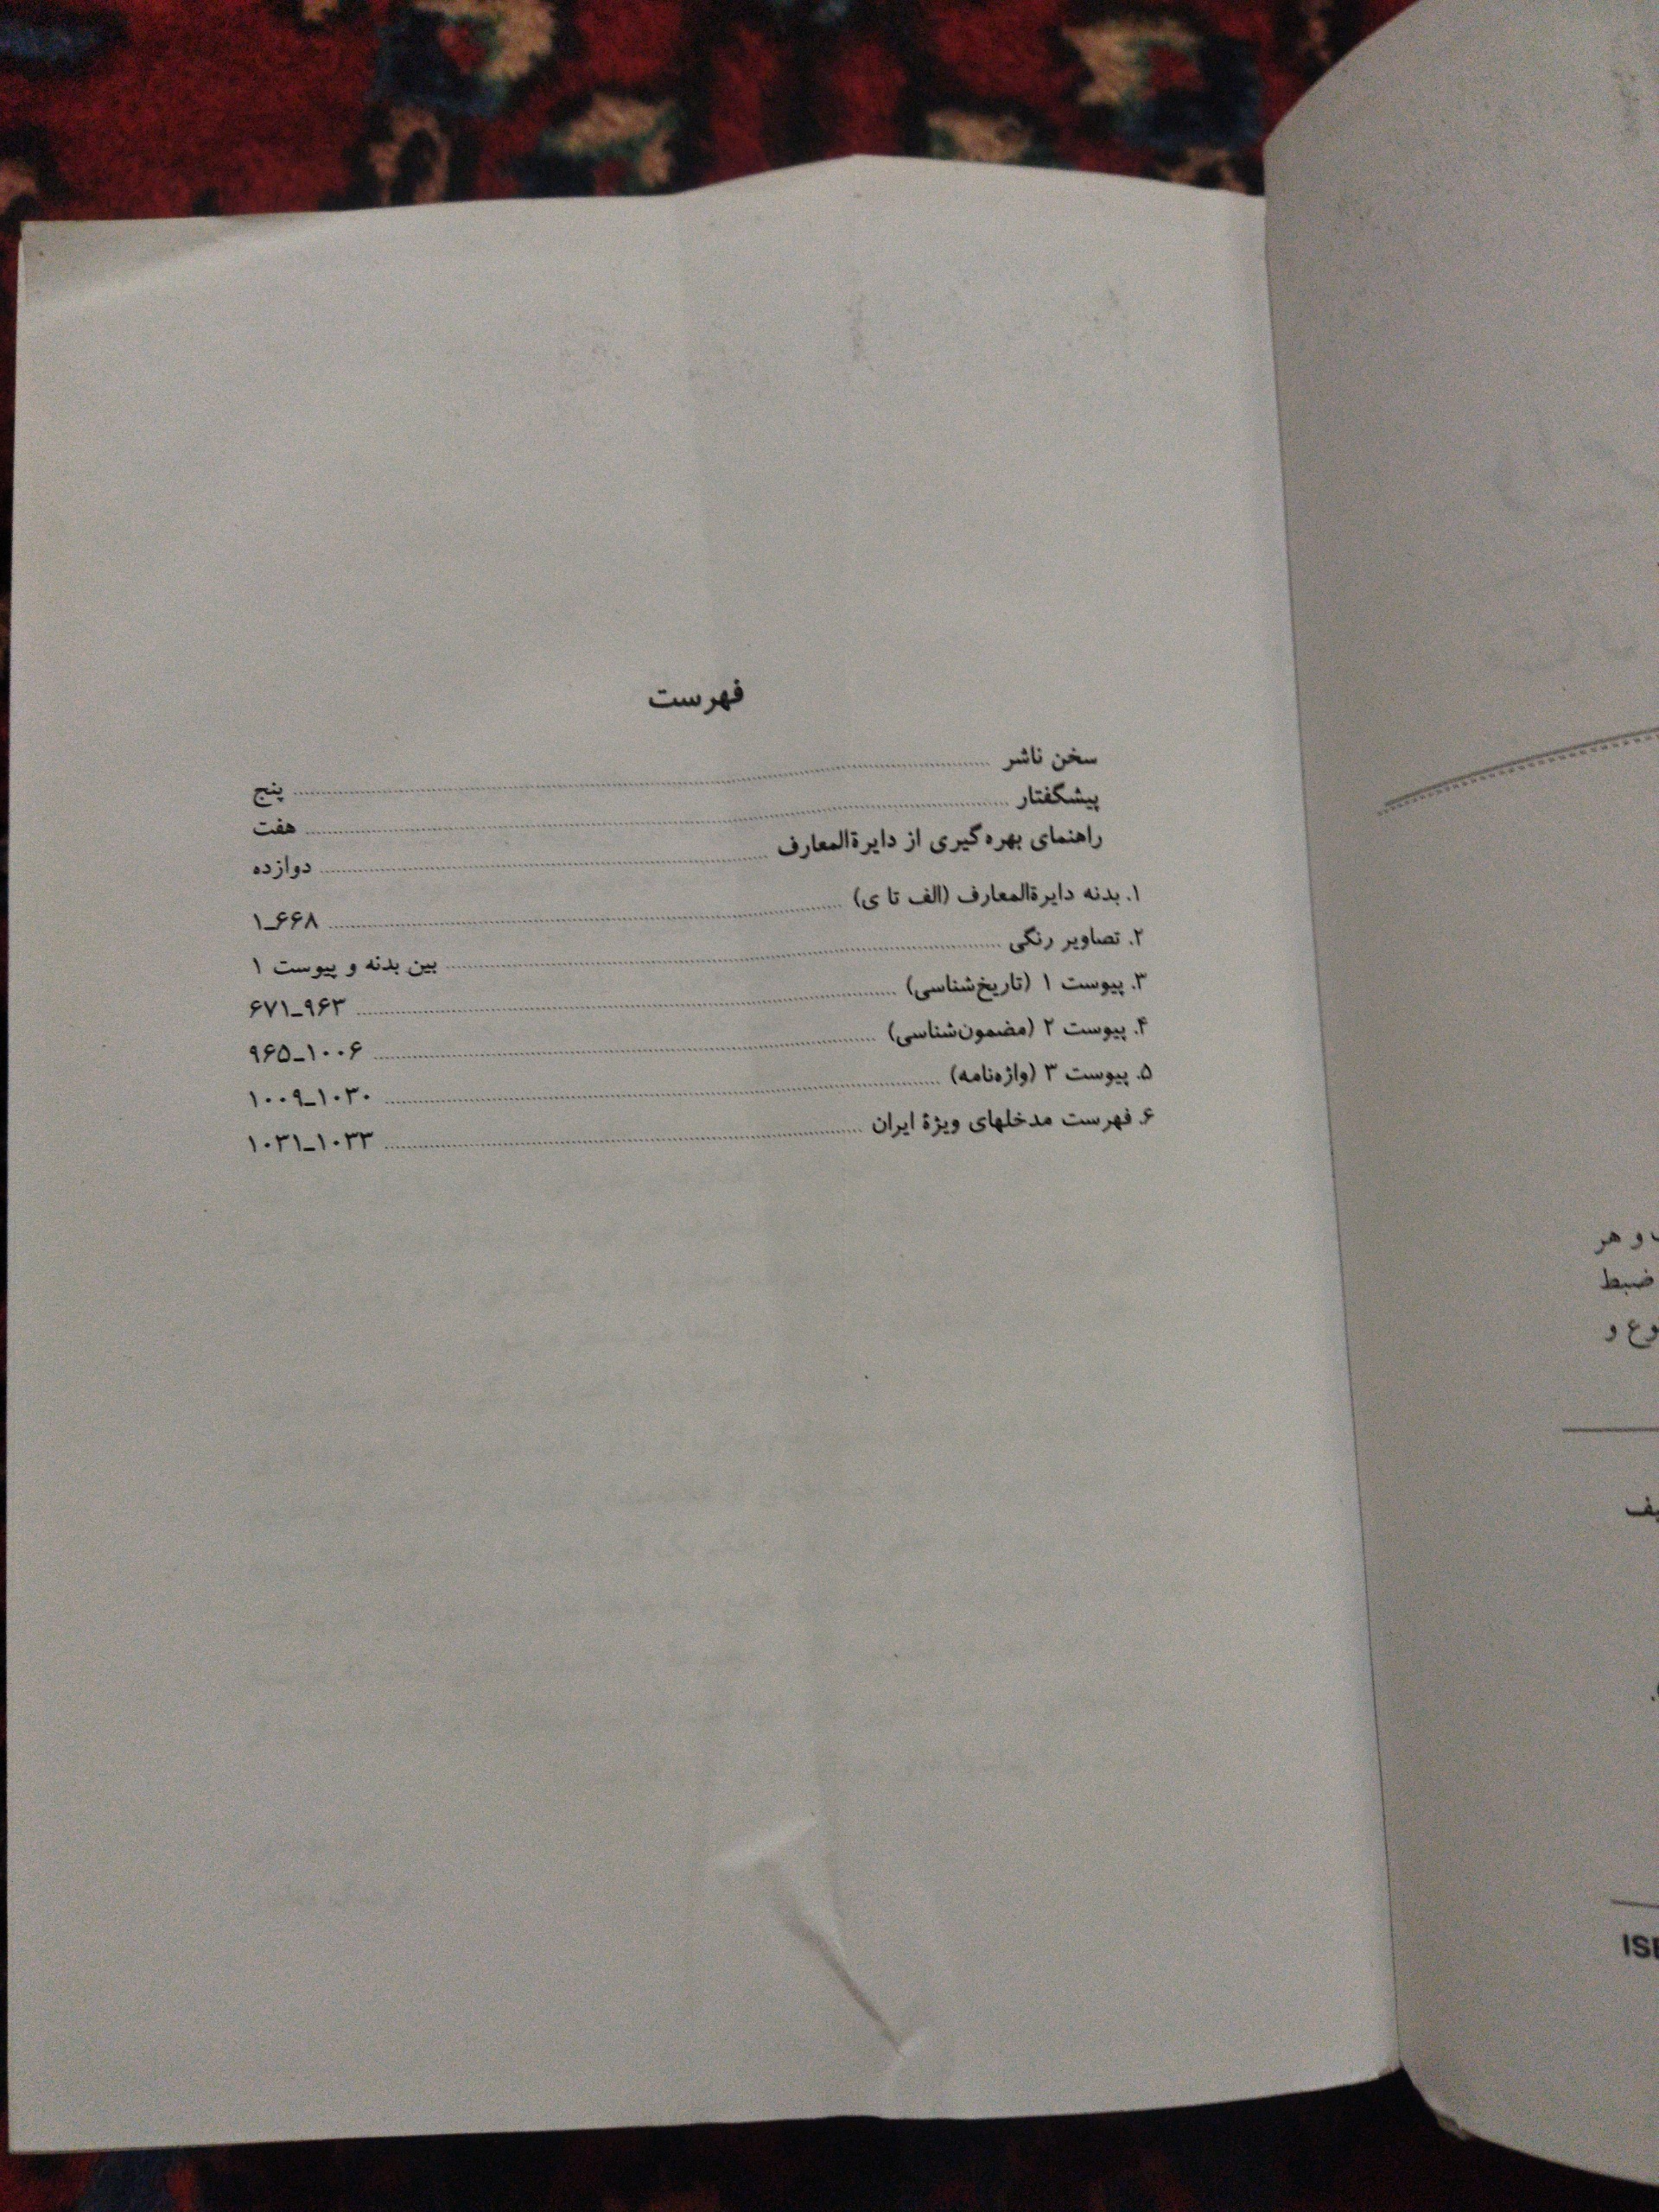 فهرست
سخن ناشر ........ پنج
پیشگفتار ........ هفت
راهنمای بهره‌گیری از دایرةالمعارف ........ دوازده
۱. بدنه دایرةالمعارف (الف تا ی) ........ ۱ـ۶۶۸
۲. تصاویر رنگی ........ بین بدنه و پیوست ۱
۳. پیوست ۱ (تاریخ‌شناسی) ........ ۶۷۱ـ۹۶۳
۴. پیوست ۲ (مضمون‌شناسی) ........ ۹۶۵ـ۱۰۰۶
۵. پیوست ۳ (واژه‌نامه) ........ ۱۰۰۹ـ۱۰۳۰
۶. فهرست مدخلهای ویژهٔ ایران ........ ۱۰۳۱ـ۱۰۳۳
و هر
ضبط
و